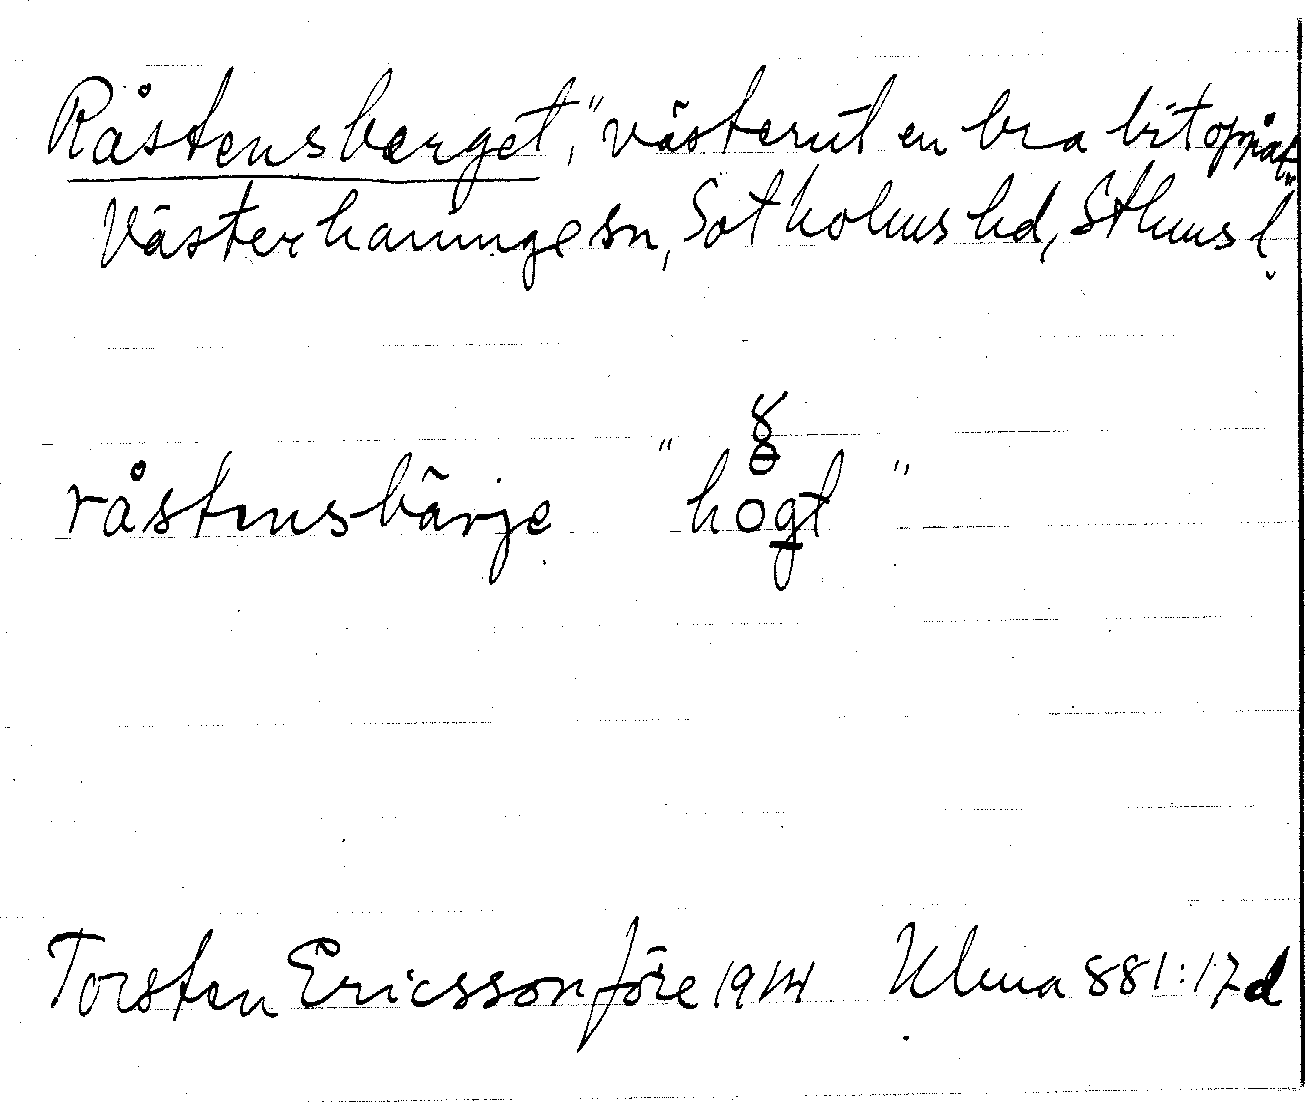 Råstensberget, "västerut en bra bit oppåt"
Västerhaninge sn, Sotholms hd, Sthms l.
råstensbärje "högt"
Torsten Ericsson före 1914 Ulma 881:17d